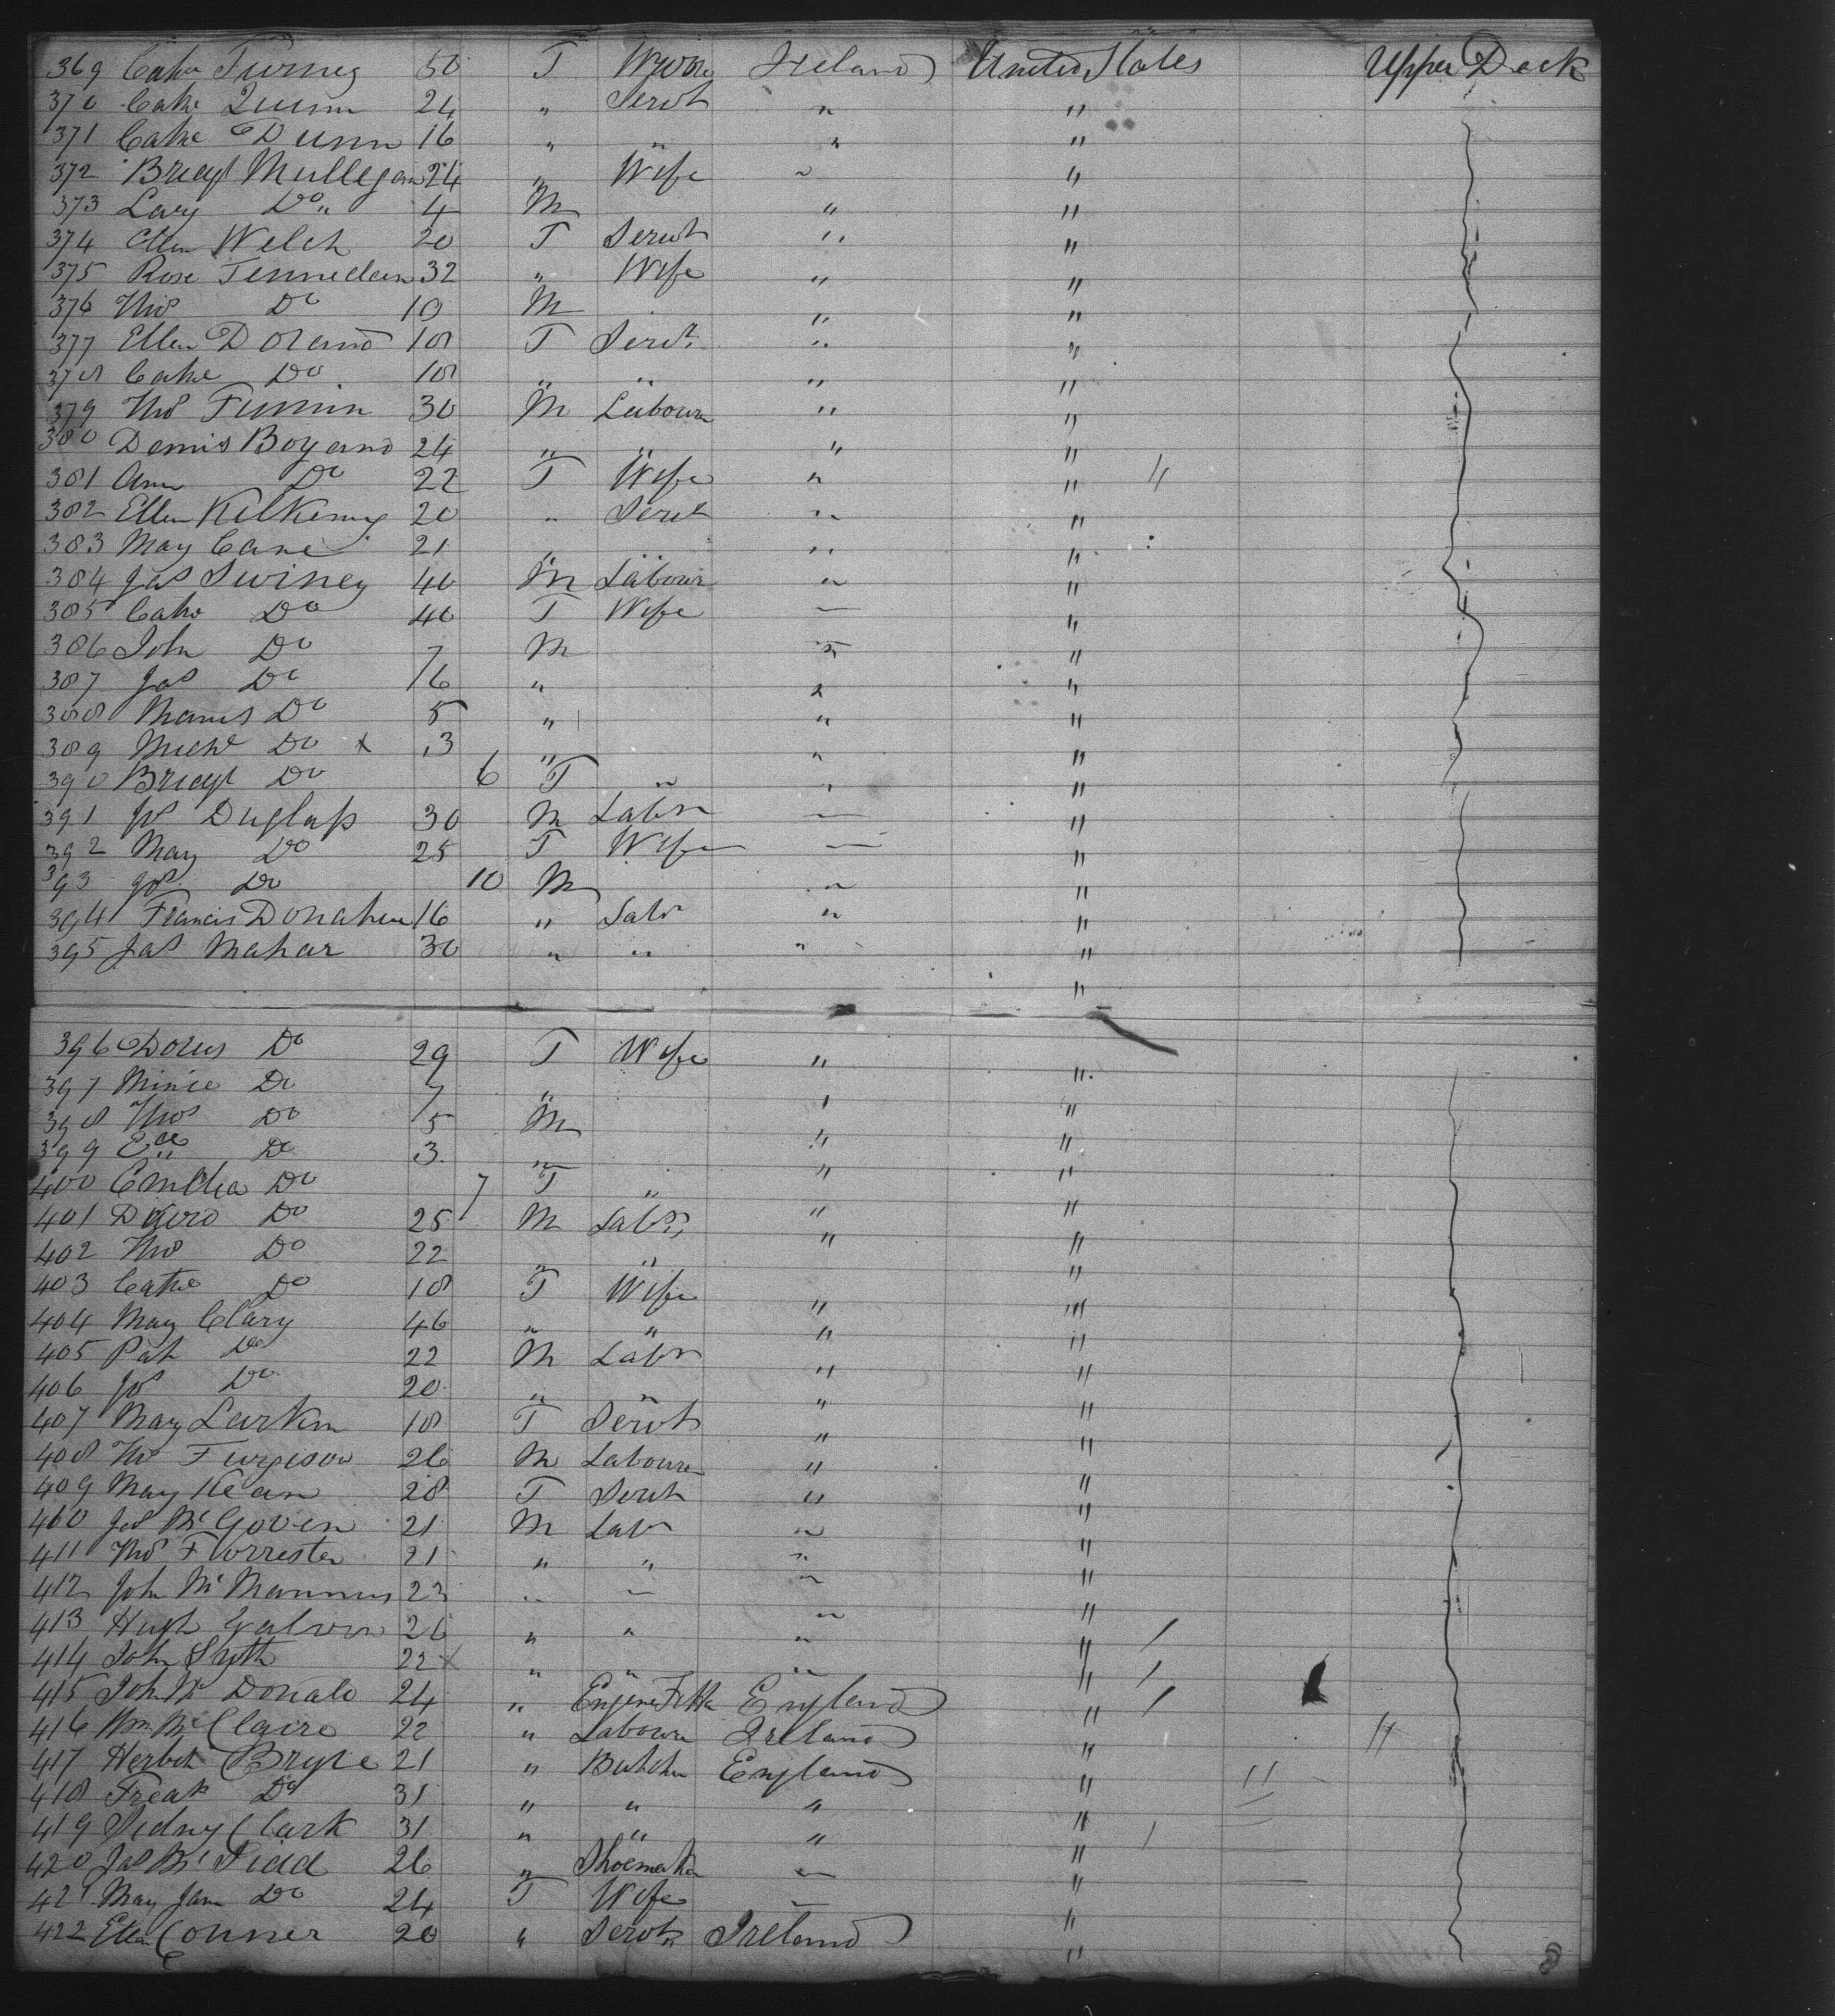 369 Cathe Turney 50 F Ireland United States Upper Deck
370 Cathe Quinn 24 " Servt " "
371 Cathe Dunn 16 " " " "
372 Bridgt Mullegan 24 " Wife " "
373 Lary Do " 4 M " "
374 Ellen Welch 20 F Servt " "
375 Rose Fennedan 32 " Wife " "
376 Thos Do 10 M " "
377 Ellen Doland 18 F Servt " "
378 Cathe Do 18 " " " "
379 Thos 30 M Labourer " "
380 Dennis Boyand 24 " " " "
381 Ann Do 22 F Wife " "
382 Ellen Kilkenny 20 " Servt " "
383 Mary Cane 21 " " " "
384 Jas Swiney 40 M Labour " "
385 Cathe Do 40 F Wife " "
386 John Do 7 M " "
387 Jas Do 6 " " "
388 Do 5 " " "
389 Michl Do x 3 " " "
390 Bridgt Do 6 F " " "
391 Duglass 30 M Labr " "
392 Mary Do 25 F Wife " "
393 Do 10 M " "
394 Francis Donahue 16 " Labr " "
395 Jas Mahar 30 " " " "
"
396 Do 29 F Wife " "
397 Do 7 " " "
398 Thos Do 5 M " "
399 Do 3 " " "
400 Do 7 F " " "
401 David Do 25 M Labr " "
402 Thos Do 22 " " " "
403 Cathe Do 18 F Wife " "
404 Mary Clary 46 " " " "
405 Pat Do 22 M Labr " "
406 Do 20 " " " "
407 Mary Larkin 18 F Servt " "
408 Thos Furgison 26 M Labourer " "
409 Mary Kean 28 F Servt " "
410 Jas McGovern 21 M Labr " "
411 Thos Forrester 21 " " " "
412 John McMannus 23 " " " "
413 Hugh Galvin 26 " " " "
414 John Smyth 22 x " " " "
415 John McDonald 24 " Engine Fitter England "
416 Wm McClaire 22 " Labourer Ireland "
417 Herbert Bryce 21 " Butcher England "
418 Do 31 " " " "
419 Sidny Clark 31 " " " "
420 Jas 26 " Shoemaker " "
421 Mary Jane Do 24 F Wife " "
422 Ellen Conner 20 " Servt Ireland "
8